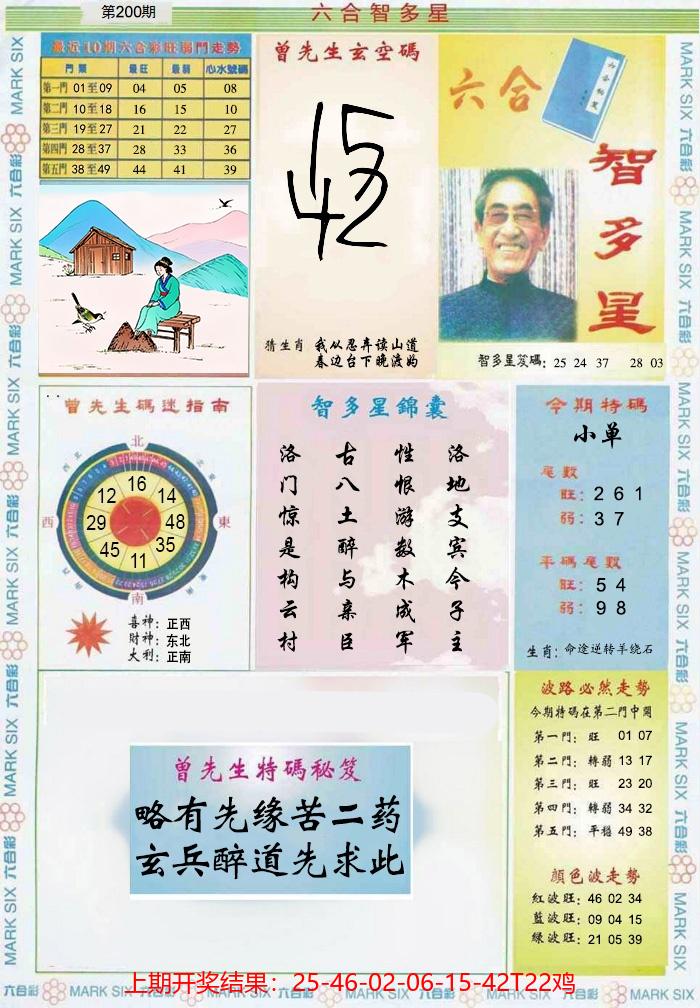 第200期
六合智多星
最近10期六合彩旺弱門走勢
門類 最旺 最弱 心水號碼
第一門 01至09 04 05 08
第二門 10至18 16 15 10
第三門 19至27 21 22 27
第四門 28至37 28 33 36
第五門 38至49 44 41 39
曾先生玄空碼
猜生肖 我从忍弃读山道
春边台下晚渡妈
六合
六合秘笈
智多星
智多星笈碼: 25 24 37 28 03
曾先生碼迷指南
北
西北
東北
西
東
南
16
12 14
29 48
45 35
11
喜神: 正西
财神: 东北
大利: 正南
智多星錦囊
洛地支宾今子主
性恨游数木成军
古八土醉与亲臣
洛门惊是构云村
今期特碼
小单
尾數
旺: 2 6 1
弱: 3 7
平碼尾數
旺: 5 4
弱: 9 8
生肖: 命途逆转羊绕石
曾先生特碼秘笈
略有先缘苦二药
玄兵醉道先求此
波路必然走勢
今期特碼在第二門中開
第一門: 旺 01 07
第二門: 轉弱 13 17
第三門: 旺 23 20
第四門: 轉弱 34 32
第五門: 平穩 49 38
顏色波走勢
紅波旺: 46 02 34
藍波旺: 09 04 15
綠波旺: 21 05 39
上期开奖结果：25-46-02-06-15-42T22鸡
MARK SIX 六合彩